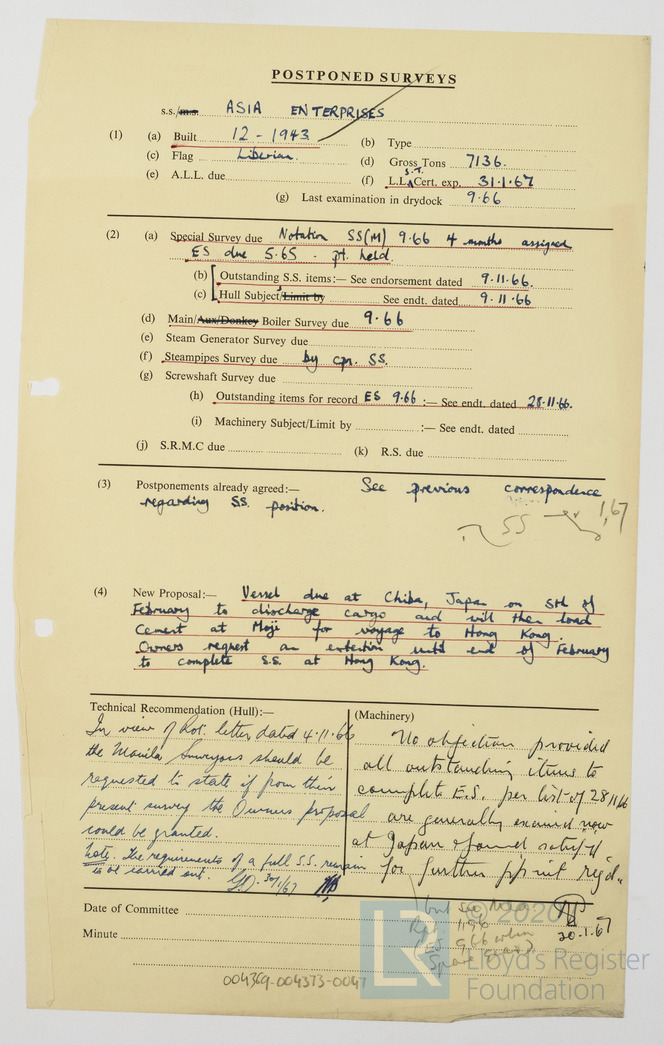 POSTPONED SURVEYS
s.s./m.s. ASIA ENTERPRISES
(1) (a) Built 12 - 1943 (b) Type
(c) Flag Liberian. (d) Gross Tons 7136.
(e) A.L.L. due (f) L.L. S.T. Cert. exp. 31.1.67
(g) Last examination in drydock 9.66
(2) (a) Special Survey due Notation SS(M) 9.66 4 months assigned
ES due 5.65 - pt. held.
(b) Outstanding S.S. items:— See endorsement dated 9.11.66.
(c) Hull Subject/Limit by See endt. dated 9.11.66
(d) Main/Aux/Donkey Boiler Survey due 9.66
(e) Steam Generator Survey due
(f) Steampipes Survey due by cpn. SS.
(g) Screwshaft Survey due
(h) Outstanding items for record ES 9.66 :— See endt. dated 28.11.66.
(i) Machinery Subject/Limit by :— See endt. dated
(j) S.R.M.C due (k) R.S. due
(3) Postponements already agreed:— See previous correspondence
regarding SS. position.
SS 1,67
(4) New Proposal:— Vessel due at Chiba, Japan on 5th of
February to discharge cargo and will then load
Cement at Moji for voyage to Hong Kong.
Owners request an extention until end of February
to complete S.S. at Hong Kong.
Technical Recommendation (Hull):—
In view of Rot. letter dated 4.11.66
the Manila Surveyors should be
requested to state if from their
present survey the Owners proposal
could be granted.
Note. The requirements of a full S.S. remain
to be carried out. 30/1/67
(Machinery)
No objection provided
all outstanding items to
complete E.S. per list of 28/11/66
are generally examd now
at Japan & found satisfd
for further ppmt reqd.
Date of Committee
30.1.67
Minute
(ES 9.66 when
004369-004373-0047
© 2020
LR
Lloyd's Register
Foundation